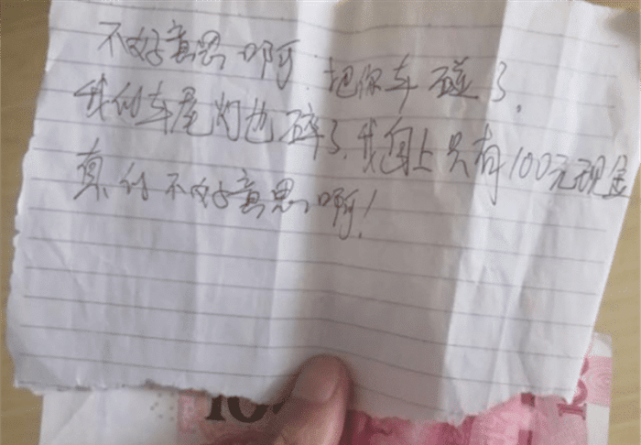 不好意思啊,把你车碰了,
我的车尾灯也碎了,我身上只有100元现金
真的不好意思啊!
10